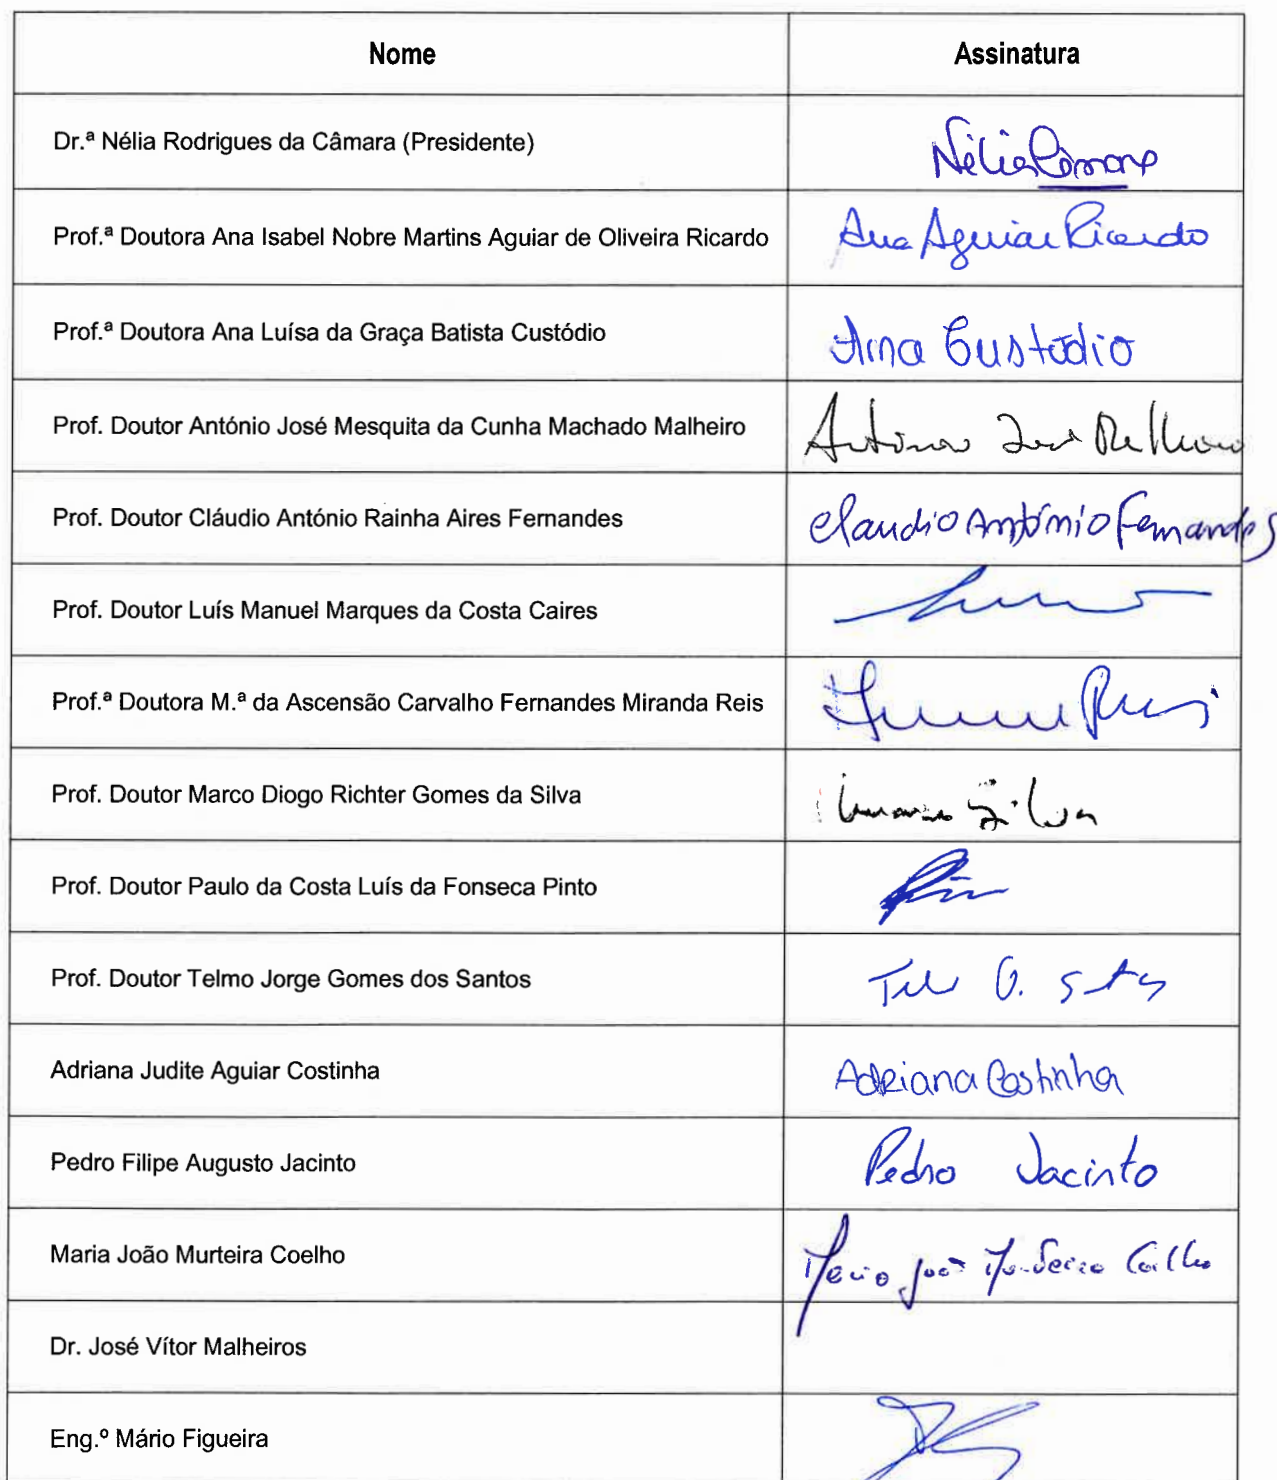 Nome Assinatura
Dr.ª Nélia Rodrigues da Câmara (Presidente) Nélia Câmara
Prof.ª Doutora Ana Isabel Nobre Martins Aguiar de Oliveira Ricardo Ana Aguiar Ricardo
Prof.ª Doutora Ana Luísa da Graça Batista Custódio Ana Custódio
Prof. Doutor António José Mesquita da Cunha Machado Malheiro António José Malheiro
Prof. Doutor Cláudio António Rainha Aires Fernandes Claudio António Fernandes
Prof. Doutor Luís Manuel Marques da Costa Caires
Prof.ª Doutora M.ª da Ascensão Carvalho Fernandes Miranda Reis Reis
Prof. Doutor Marco Diogo Richter Gomes da Silva Marco Silva
Prof. Doutor Paulo da Costa Luís da Fonseca Pinto
Prof. Doutor Telmo Jorge Gomes dos Santos Telmo G. Santos
Adriana Judite Aguiar Costinha Adriana Costinha
Pedro Filipe Augusto Jacinto Pedro Jacinto
Maria João Murteira Coelho Maria João Murteira Coelho
Dr. José Vítor Malheiros
Eng.º Mário Figueira